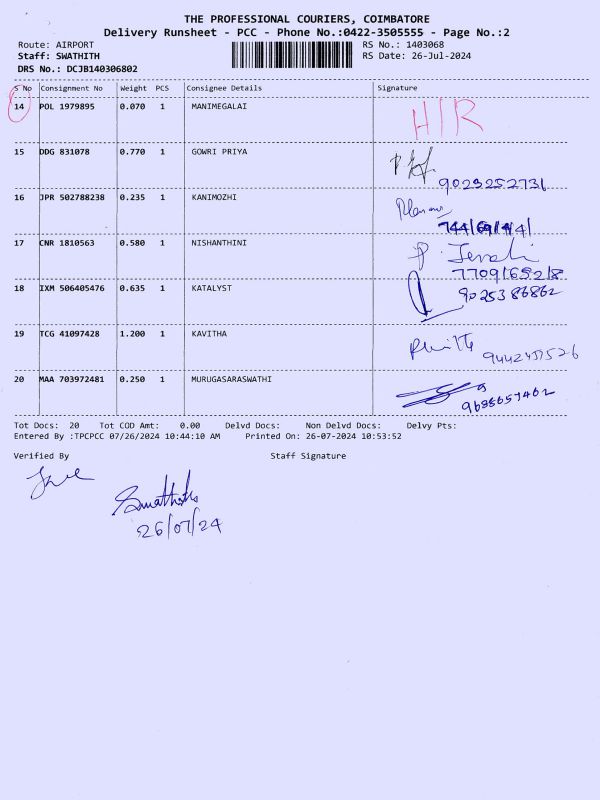 THE PROFESSIONAL COURIERS, COIMBATORE
Delivery Runsheet - PCC - Phone No.:0422-3505555 - Page No.:2
Route: AIRPORT RS No.: 1403068
Staff: SWATHITH RS Date: 26-Jul-2024
DRS No.: DCJB140306802
S No Consignment No Weight PCS Consignee Details Signature
14 POL 1979895 0.070 1 MANIMEGALAI HIR
15 DDG 831078 0.770 1 GOWRI PRIYA
9023252731
16 JPR 502788238 0.235 1 KANIMOZHI
17 CNR 1810563 0.580 1 NISHANTHINI
7709165218
18 IXM 506405476 0.635 1 KATALYST 9025386862
19 TCG 41097428 1.200 1 KAVITHA
20 MAA 703972481 0.250 1 MURUGASARASWATHI
Tot Docs: 20 Tot COD Amt: 0.00 Delvd Docs: Non Delvd Docs: Delvy Pts:
Entered By :TPCPCC 07/26/2024 10:44:10 AM Printed On: 26-07-2024 10:53:52
Verified By Staff Signature
Swathith
26/07/24